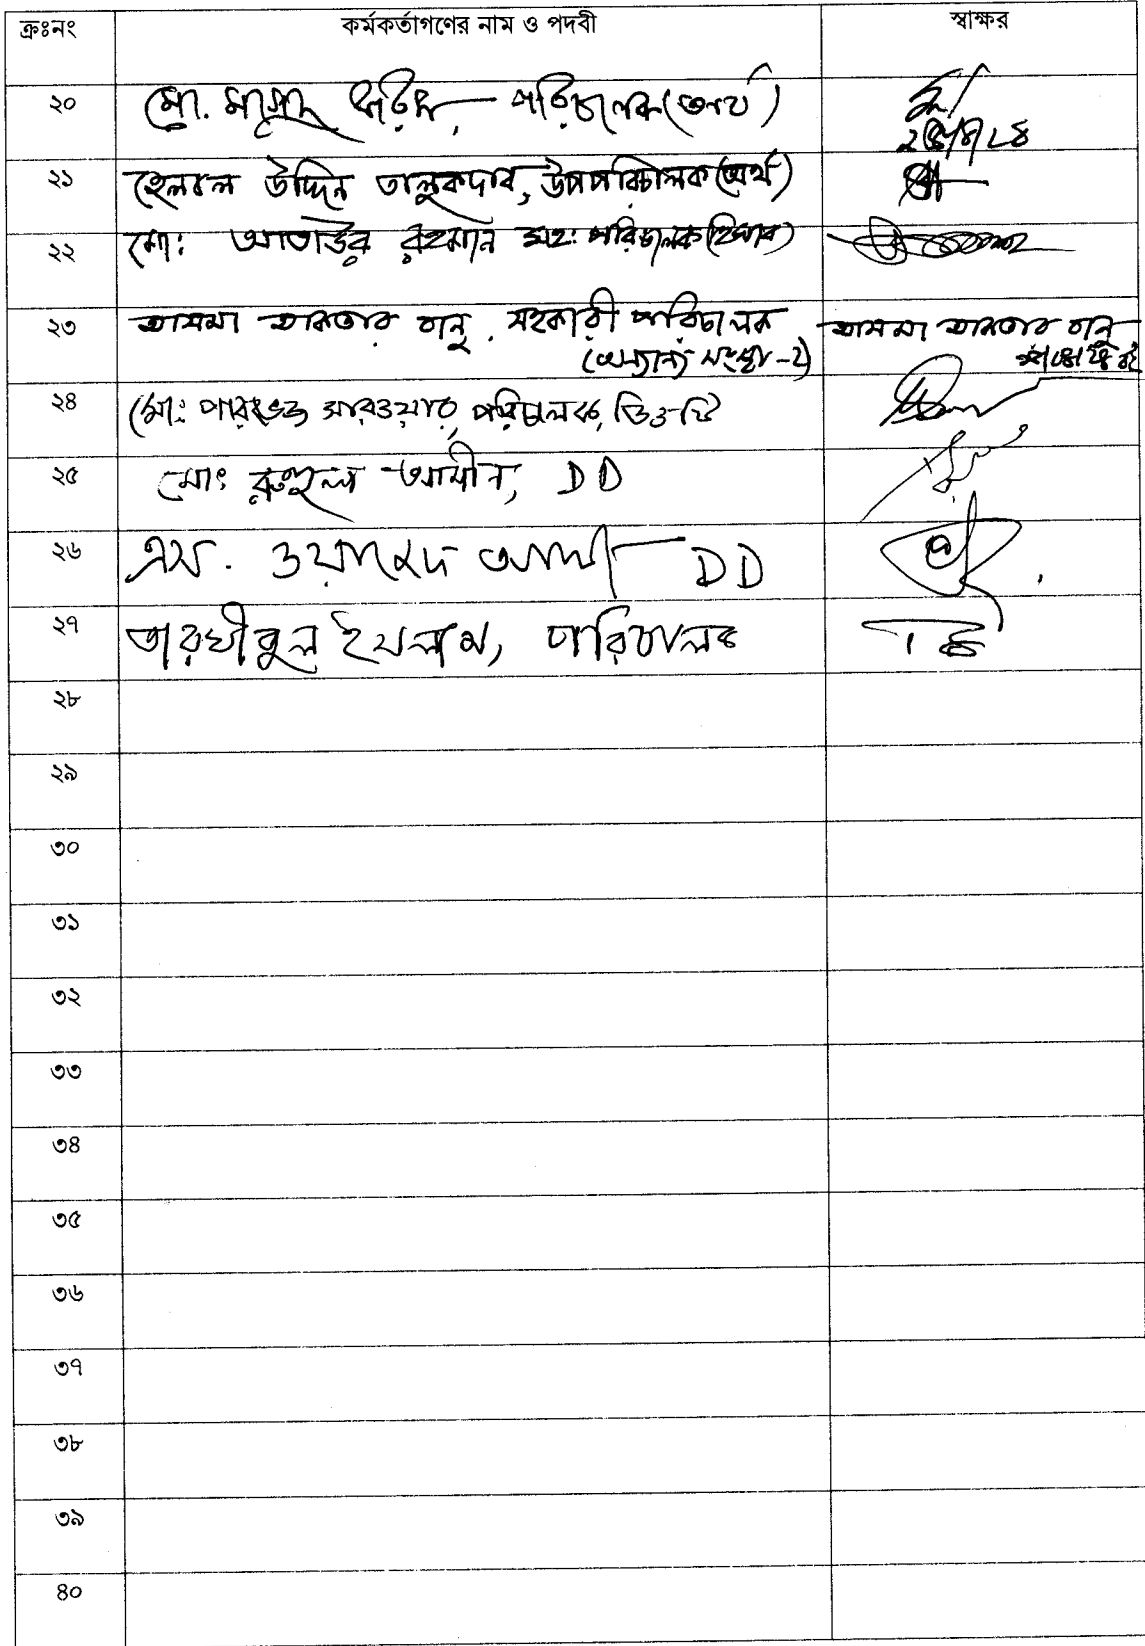 ক্রঃনং কর্মকর্তাগণের নাম ও পদবী স্বাক্ষর
২০ মো. মাসুদ করিম, পরিচালক (অর্থ)
২১ হেলাল উদ্দিন তালুকদার, উপপরিচালক (অর্থ)
২২ মো: আতাউর রহমান সহ: পরিচালক (হিসাব)
২৩ আসমা আকতার বানু, সহকারী পরিচালক আসমা আকতার বানু
২৪ মোঃ পারভেজ সারওয়ার, পরিচালক,
২৫ মোঃ রুহুল আমীন, DD
২৬ এস. ওয়াহেদ আলী DD
২৭ তারযীবুল ইসলাম, পরিচালক
২৮
২৯
৩০
৩১
৩২
৩৩
৩৪
৩৫
৩৬
৩৭
৩৮
৩৯
৪০